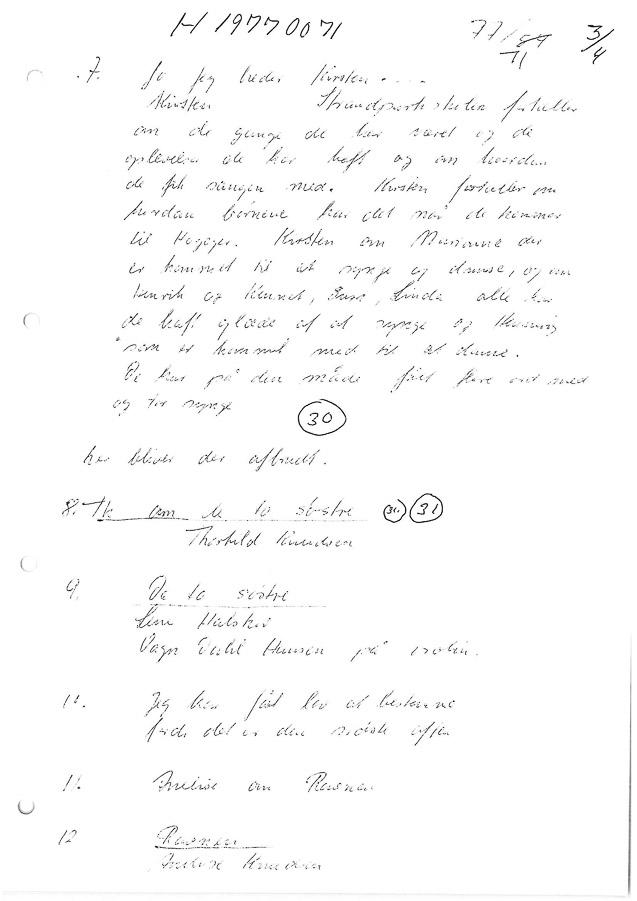 H 19770071
77/89
71
3/4
7. Ja jeg heder Kirsten ....
Kirsten Strandparkskolen fortæller
om de gange de har været og de
oplevelser de har haft og om hvordan
de fik sangen med. Kirsten fortæller om
hvordan børnene har det når de kommer
til Hogager. Kirsten om Marianne der
er kommet til at synge og danse, og om
Henrik og Kennet, Linda alle har
de haft glæde af at synge og Henning
som er kommet med til at danse.
De har på den måde fået flere ord med
og tør synge
30
her bliver der afbrudt.
8. TK om de to søstre 31
Thorkild Knudsen
9. De to søstre
Lene Halskov
Vagn Dahl Hansen på violin.
10. Jeg har fået lov at bestemme
fordi det er den sidste aften
11. Anelise om Ravnen
12 Ravnen
Anelise Knudsen